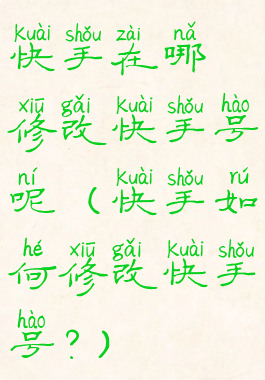 kuài shǒu zài nǎ
快手在哪
xiū gǎi kuài shǒu hào
修改快手号
ní kuài shǒu rú
呢（快手如
hé xiū gǎi kuài shǒu
何修改快手
hào
号？）